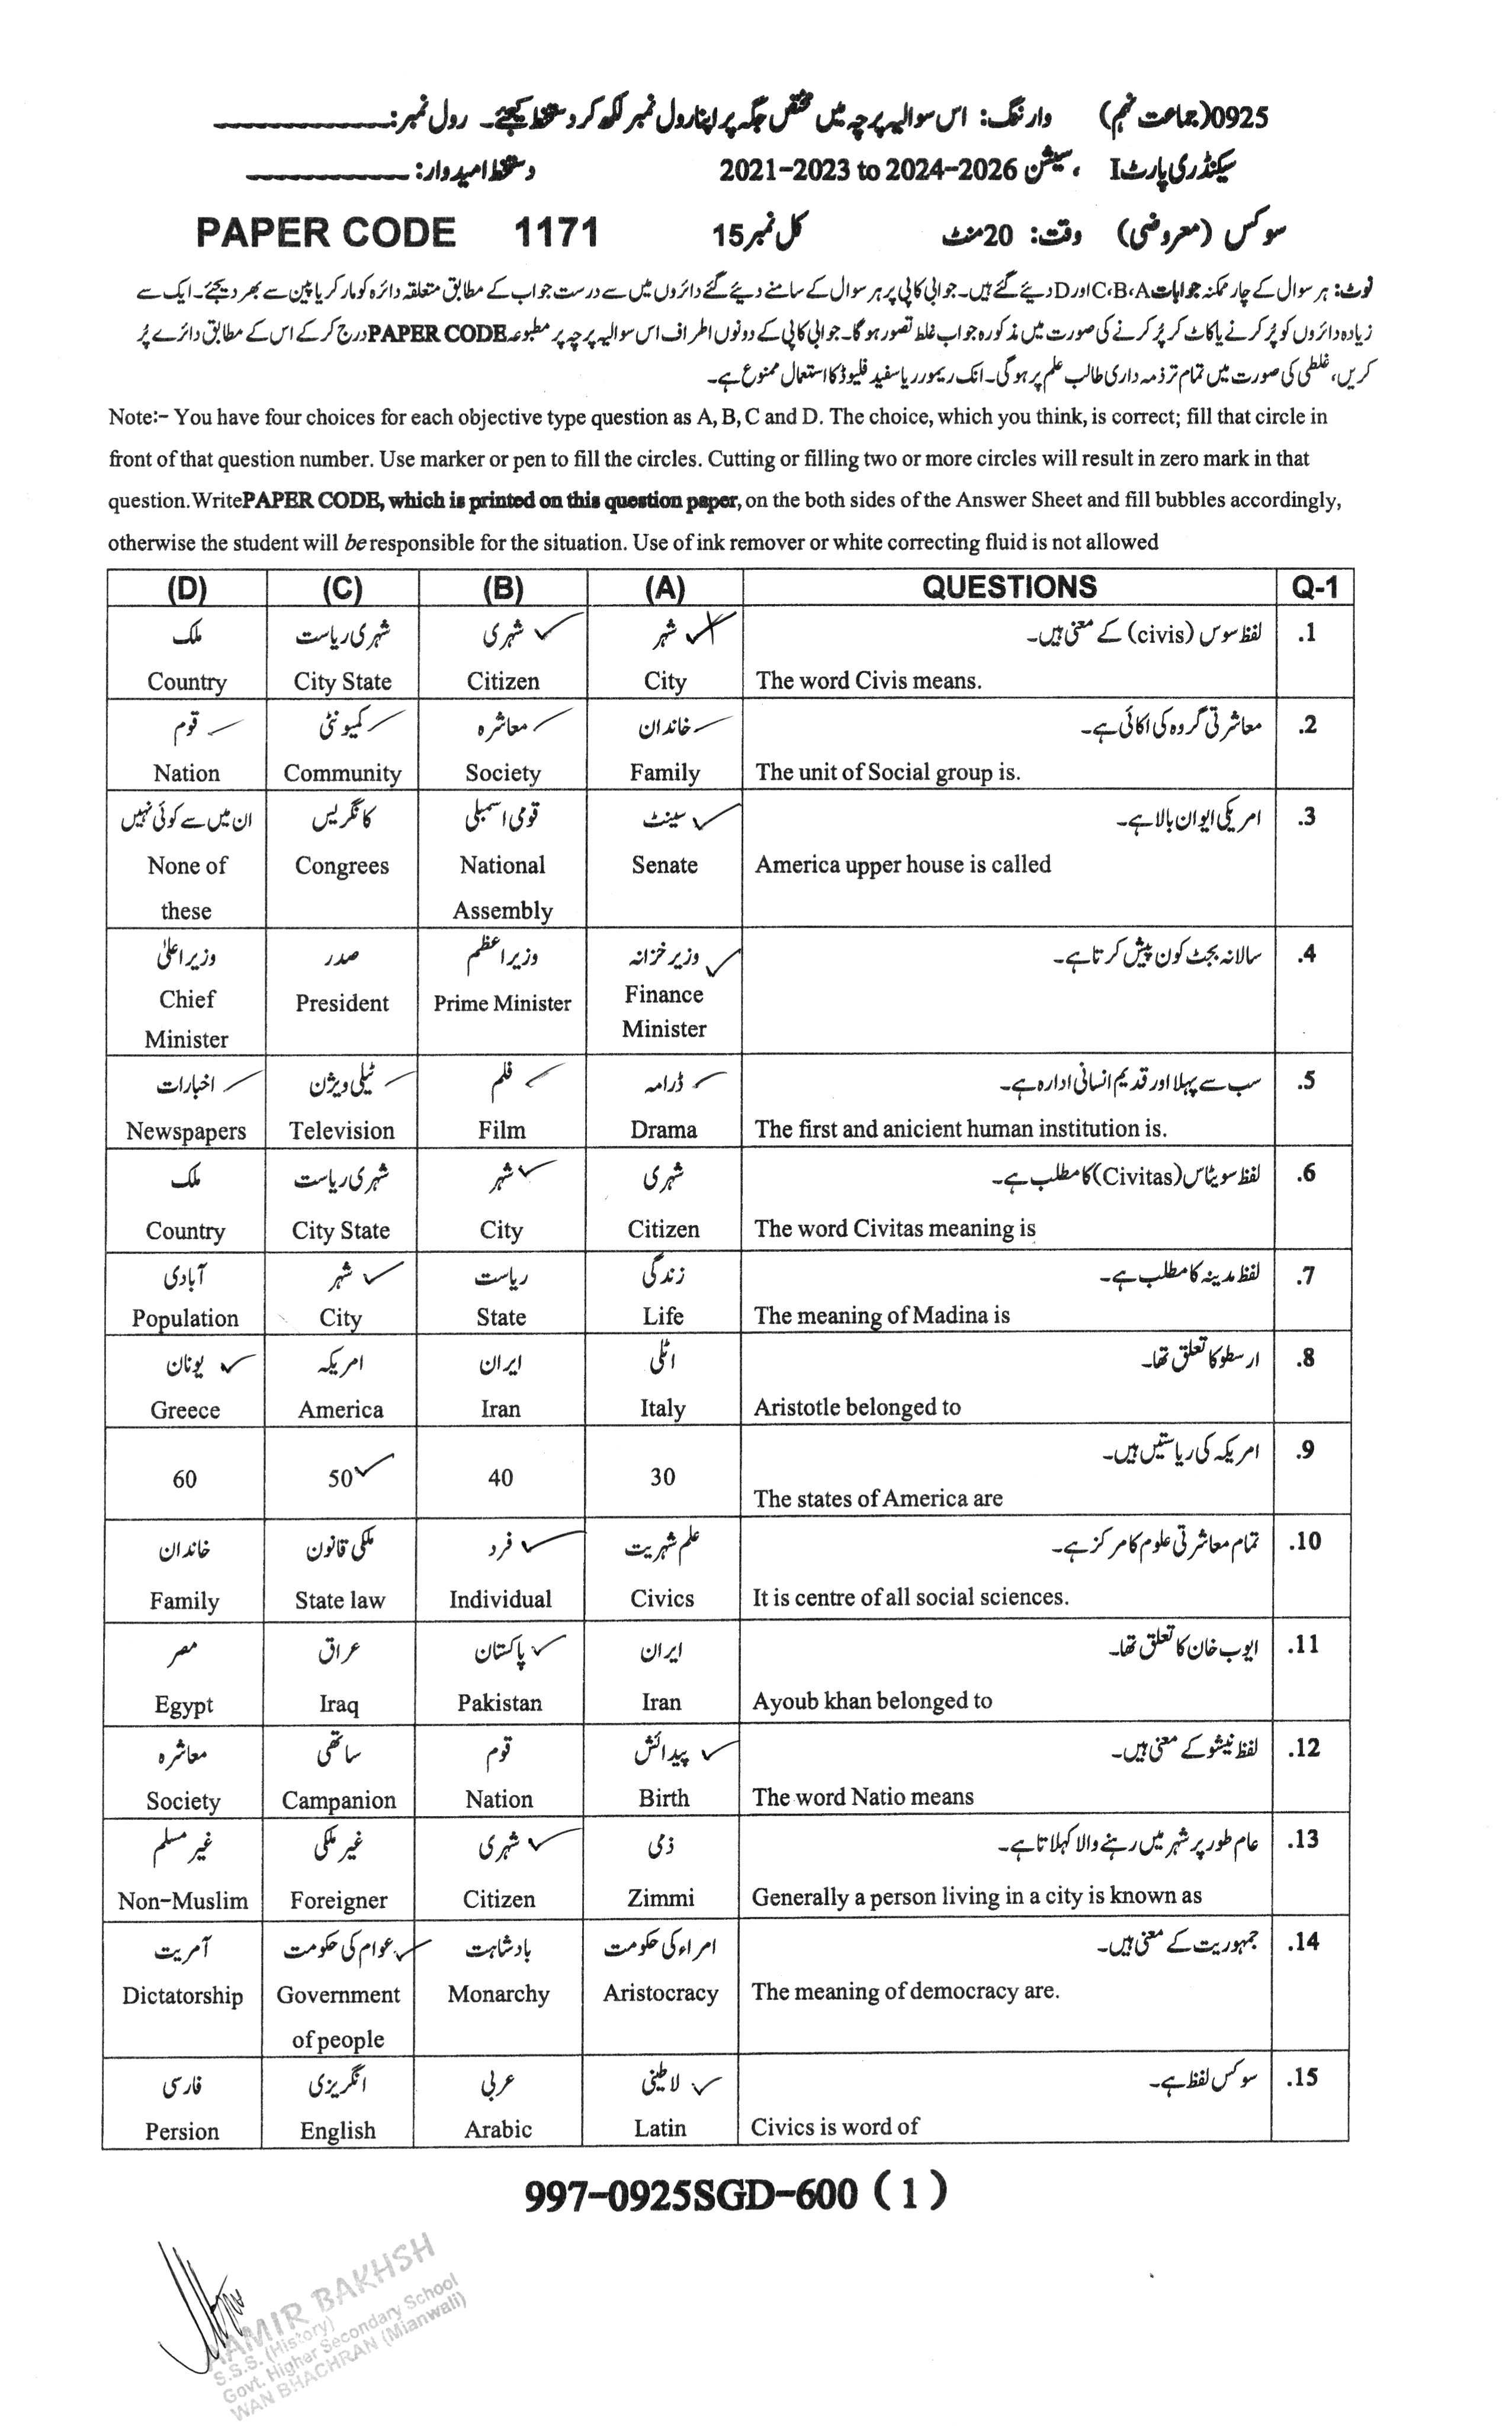 0925(جماعت نہم) وارننگ: اس سوالیہ پرچہ میں مختص جگہ پر اپنا رول نمبر لکھ کر دستخط کیجئے۔ رول نمبر:
سیکنڈری پارٹ I ، سیشن 2021-2023 to 2024-2026 دستخط امیدوار:
سوکس (معروضی) وقت: 20منٹ کل نمبر 15 PAPER CODE 1171
نوٹ: ہر سوال کے چار ممکنہ جوابات C،B،A اور D دیئے گئے ہیں۔ جوابی کاپی پر ہر سوال کے سامنے دیئے گئے دائروں میں سے درست جواب کے مطابق متعلقہ دائرہ کو مارکر یا پین سے بھر دیجئے۔ ایک سے
زیادہ دائروں کو پُر کرنے یا کاٹ کر پُر کرنے کی صورت میں مذکورہ جواب غلط تصور ہوگا۔ جوابی کاپی کے دونوں اطراف اس سوالیہ پرچہ پر مطبوعہ PAPER CODE درج کر کے اس کے مطابق دائرے پُر
کریں، غلطی کی صورت میں تمام تر ذمہ داری طالب علم پر ہوگی۔ انک ریموور یا سفید فلیوڈ کا استعمال ممنوع ہے۔
Note:- You have four choices for each objective type question as A, B, C and D. The choice, which you think, is correct; fill that circle in
front of that question number. Use marker or pen to fill the circles. Cutting or filling two or more circles will result in zero mark in that
question.WritePAPER CODE, which is printed on this question paper, on the both sides of the Answer Sheet and fill bubbles accordingly,
otherwise the student will be responsible for the situation. Use of ink remover or white correcting fluid is not allowed
(D) (C) (B) (A) QUESTIONS Q-1
ملک شہری ریاست شہری شہر لفظ سوس (civis) کے معنی ہیں۔ .1
Country City State Citizen City The word Civis means.
قوم کمیونٹی معاشرہ خاندان معاشرتی گروہ کی اکائی ہے۔ .2
Nation Community Society Family The unit of Social group is.
ان میں سے کوئی نہیں کانگریس قومی اسمبلی سینٹ امریکی ایوان بالا ہے۔ .3
None of Congrees National Senate America upper house is called
these Assembly
وزیراعلیٰ صدر وزیراعظم وزیر خزانہ سالانہ بجٹ کون پیش کرتا ہے۔ .4
Chief President Prime Minister Finance
Minister Minister
اخبارات ٹیلی ویژن فلم ڈرامہ سب سے پہلا اور قدیم انسانی ادارہ ہے۔ .5
Newspapers Television Film Drama The first and anicient human institution is.
ملک شہری ریاست شہر شہری لفظ سویٹاس (Civitas) کا مطلب ہے۔ .6
Country City State City Citizen The word Civitas meaning is
آبادی شہر ریاست زندگی لفظ مدینہ کا مطلب ہے۔ .7
Population City State Life The meaning of Madina is
یونان امریکہ ایران اٹلی ارسطو کا تعلق تھا۔ .8
Greece America Iran Italy Aristotle belonged to
امریکہ کی ریاستیں ہیں۔ .9
60 50 40 30 The states of America are
خاندان ملکی قانون فرد علم شہریت تمام معاشرتی علوم کا مرکز ہے۔ .10
Family State law Individual Civics It is centre of all social sciences.
مصر عراق پاکستان ایران ایوب خان کا تعلق تھا۔ .11
Egypt Iraq Pakistan Iran Ayoub khan belonged to
معاشرہ ساتھی قوم پیدائش لفظ نیشو کے معنی ہیں۔ .12
Society Campanion Nation Birth The word Natio means
غیر مسلم غیر ملکی شہری ذمی عام طور پر شہر میں رہنے والا کہلاتا ہے۔ .13
Non-Muslim Foreigner Citizen Zimmi Generally a person living in a city is known as
آمریت عوام کی حکومت بادشاہت امراء کی حکومت جمہوریت کے معنی ہیں۔ .14
Dictatorship Government Monarchy Aristocracy The meaning of democracy are.
of people
فارسی انگریزی عربی لاطینی سوکس لفظ ہے۔ .15
Persion English Arabic Latin Civics is word of
997-0925SGD-600 (1)
AAMIR BAKHSH
S.S.S. (History)
Govt. Higher Secondary School
WAN BHACHRAN (Mianwali)